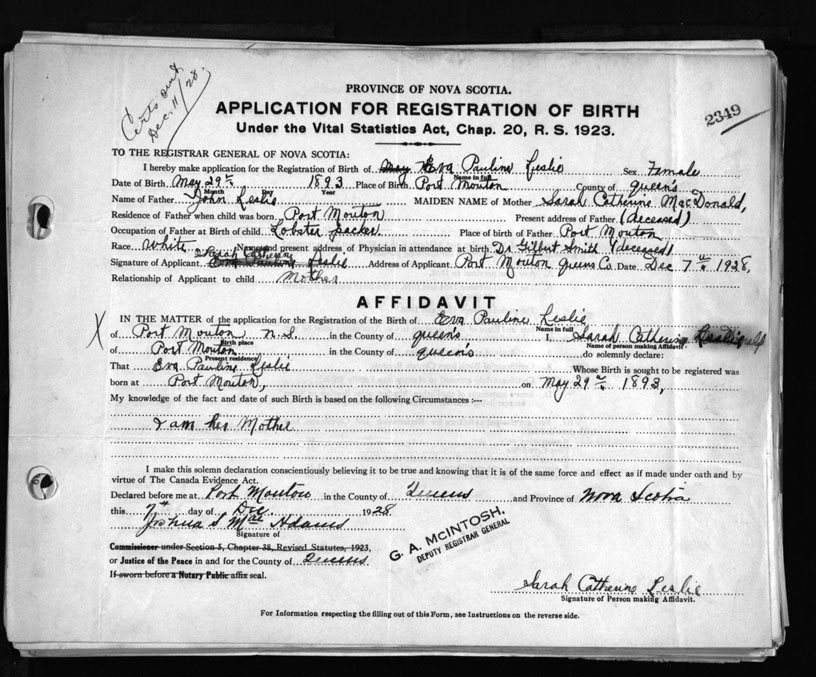 Certs out
Dec. 11/28.
2349
PROVINCE OF NOVA SCOTIA.
APPLICATION FOR REGISTRATION OF BIRTH
Under the Vital Statistics Act, Chap. 20, R. S. 1923.
TO THE REGISTRAR GENERAL OF NOVA SCOTIA:
I hereby make application for the Registration of Birth of May Eva Pauline Leslie Sex Female
Name in full
Date of Birth May 29th 1893 Place of Birth Port Mouton County of queen's
Month Day Year
Name of Father John Leslie MAIDEN NAME of Mother Sarah Catherine MacDonald,
Residence of Father when child was born, Port Mouton Present address of Father (deceased)
Occupation of Father at Birth of child. Lobster packer Place of birth of Father Port Mouton
Race White Name and present address of Physician in attendance at birth Dr. Gilbert Smith (deceased)
Sarah Catherine
Signature of Applicant Eva Pauline Leslie Address of Applicant Port Mouton Queens Co. Date Dec 7th 1928,
Relationship of Applicant to child Mother
AFFIDAVIT
IN THE MATTER of the application for the Registration of the Birth of Eva Pauline Leslie
Name in full
X of Port Mouton N.S. in the County of queen's I, Sarah Catherine Leslie
Birth place Name of person making Affidavit
of Port Mouton in the County of queen's do solemnly declare:
Present residence
That Eva Pauline Leslie Whose Birth is sought to be registered was
born at Port Mouton, on May 29th 1893,
My knowledge of the fact and date of such Birth is based on the following Circumstances :—
I am her Mother
I make this solemn declaration conscientiously believing it to be true and knowing that it is of the same force and effect as if made under oath and by
virtue of The Canada Evidence Act.
Declared before me at Port Mouton in the County of Queens and Province of Nova Scotia
this 7th day of Dec. 1928
Joshua S MacAdams
Signature of
Commissioner under Section 5, Chapter 38, Revised Statutes, 1923,
or Justice of the Peace in and for the County of Queens
If sworn before a Notary Public affix seal.
G. A. McINTOSH,
DEPUTY REGISTRAR GENERAL
Sarah Catherine Leslie
Signature of Person making Affidavit.
For Information respecting the filling out of this Form, see Instructions on the reverse side.